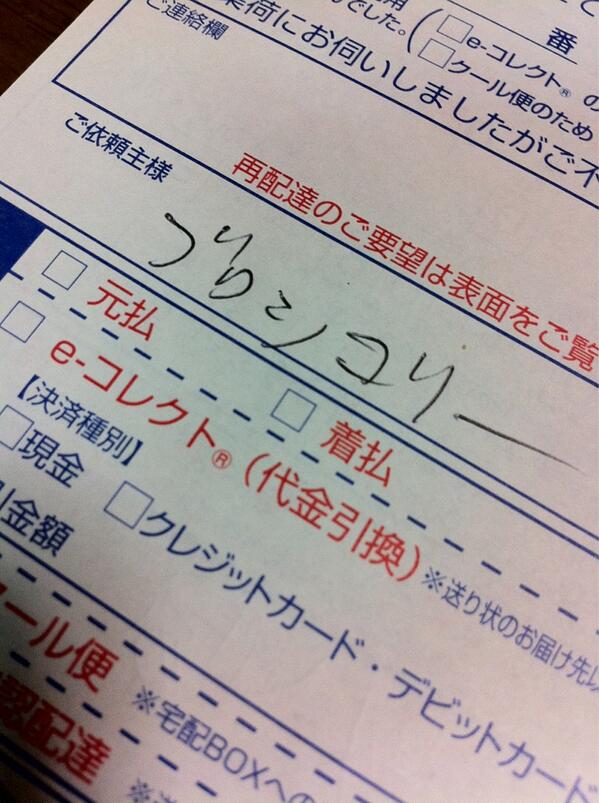 用
番
でした。
□e-コレクト®の
□クール便のため
集荷にお伺いしましたがご不
ご連絡欄
再配達のご要望は表面をご覧
ご依頼主様
ブロッコリー
□元払
□着払
□e-コレクト®(代金引換)※送り状のお届け先
【決済種別】
□現金 □クレジットカード・デビットカード
引金額
クール便
※宅配BOXへの
認配達